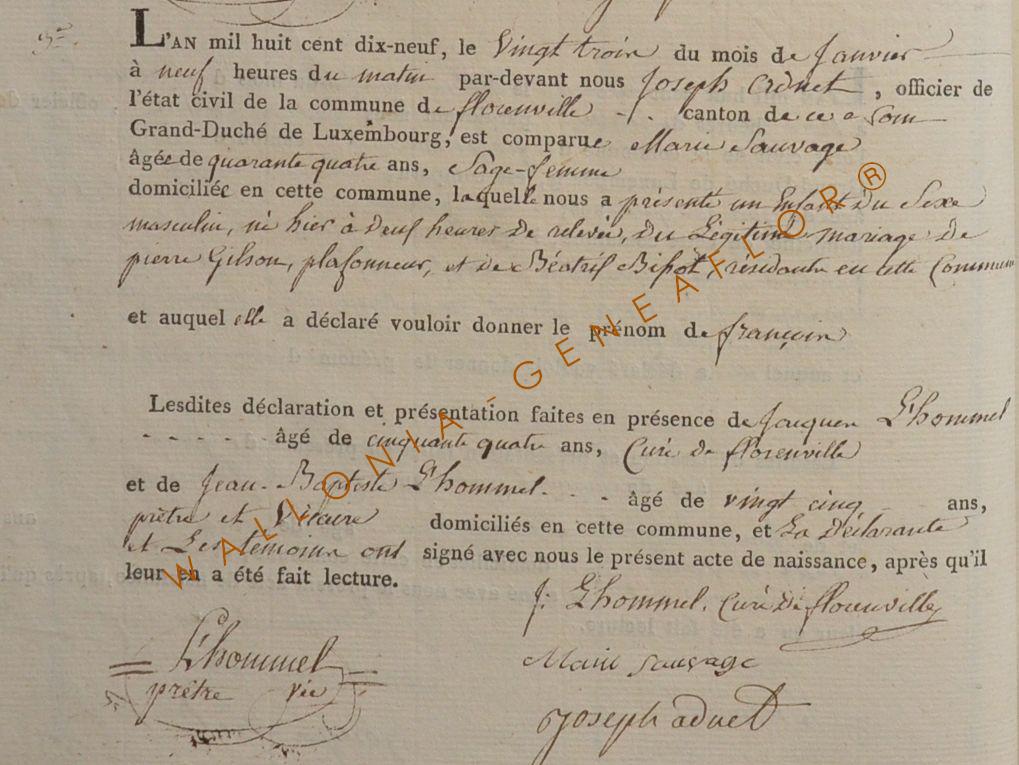 L'AN mil huit cent dix-neuf, le Vingt trois du mois de Janvier
à neuf heures du matin par-devant nous Joseph Adnet, officier de
l'état civil de la commune de florenville canton de ce nom
Grand-Duché de Luxembourg, est comparue Marie Sauvage
âgée de quarante quatre ans, Sage-femme
domiciliée en cette commune, laquelle nous a présenté un Enfant du Sexe
masculin, né hier à deux heures de relevée, du Légitime mariage de
pierre Gilson, plafonneur, et de Béatrix résidants en cette Commune
et auquel elle a déclaré vouloir donner le prénom de françois
Lesdites déclaration et présentation faites en présence de Jacques L'hommel
- - - - - âgé de cinquante quatre ans, Curé de florenville
et de Jean-Baptiste L'hommel - - - âgé de vingt cinq ans,
prêtre et Vicaire domiciliés en cette commune, et La Déclarante
et Les témoins ont signé avec nous le présent acte de naissance, après qu'il
leur en a été fait lecture.
J. L'hommel. Curé De florenville
L'hommel
prêtre vic
Marie sauvage
joseph adnet
WALLONIA - GENEAFLOR®